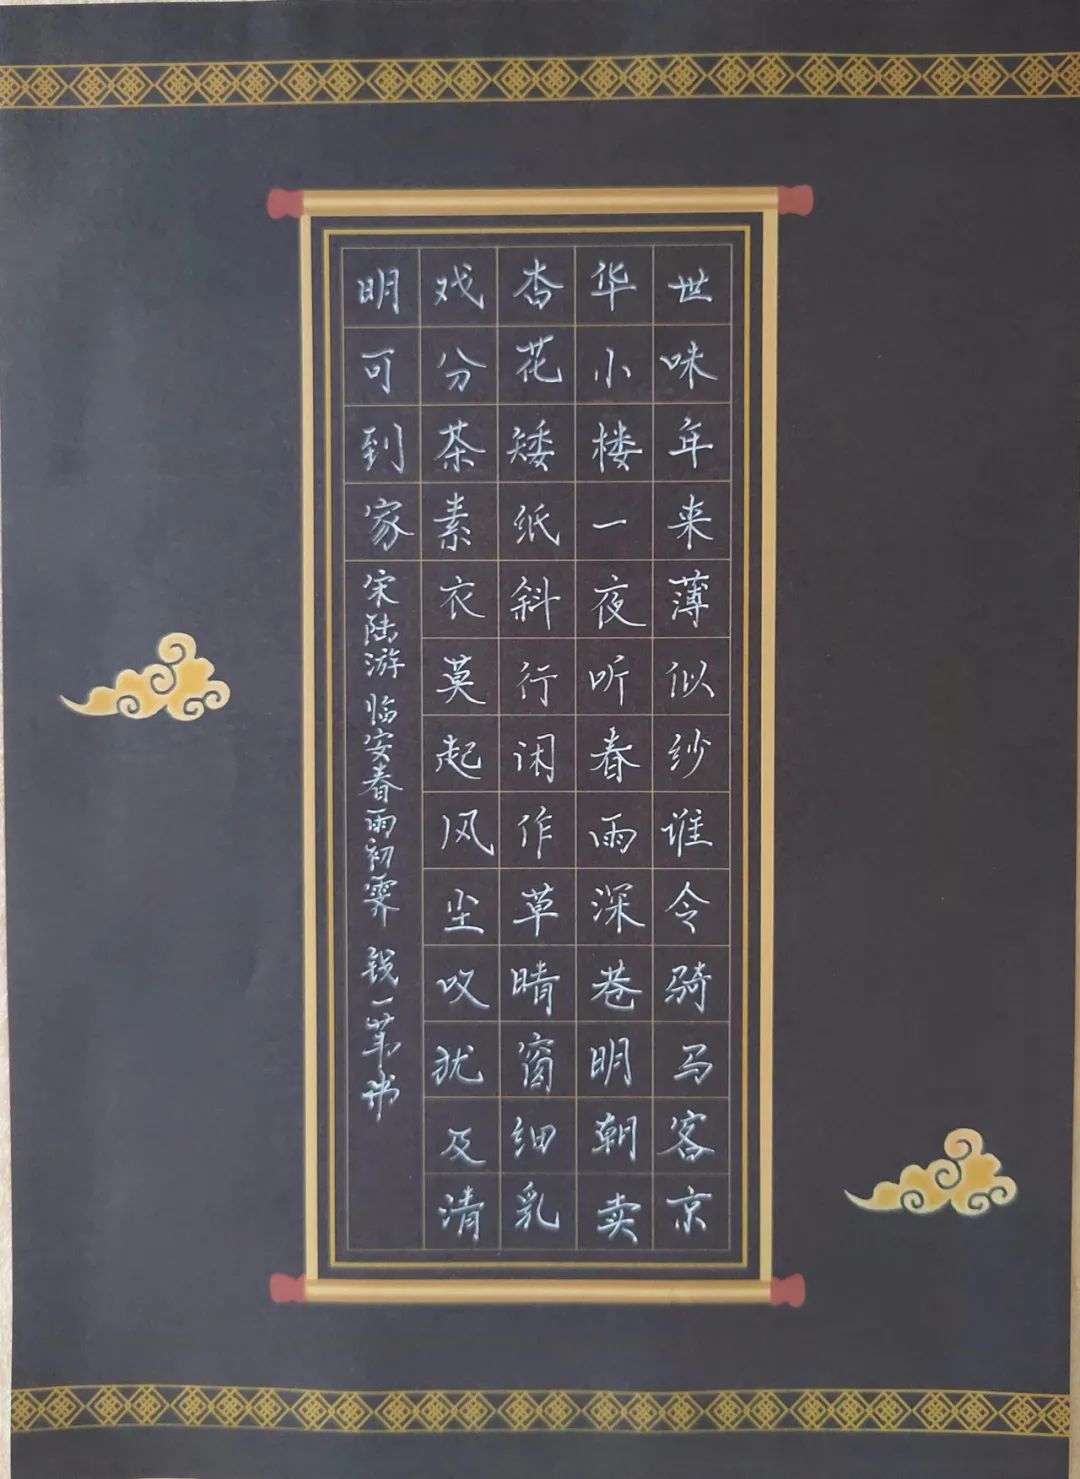 世味年来薄似纱谁令骑马客京
华小楼一夜听春雨深巷明朝卖
杏花矮纸斜行闲作草晴窗细乳
戏分茶素衣莫起风尘叹犹及清
明可到家
宋陆游 临安春雨初霁 钱一苇书